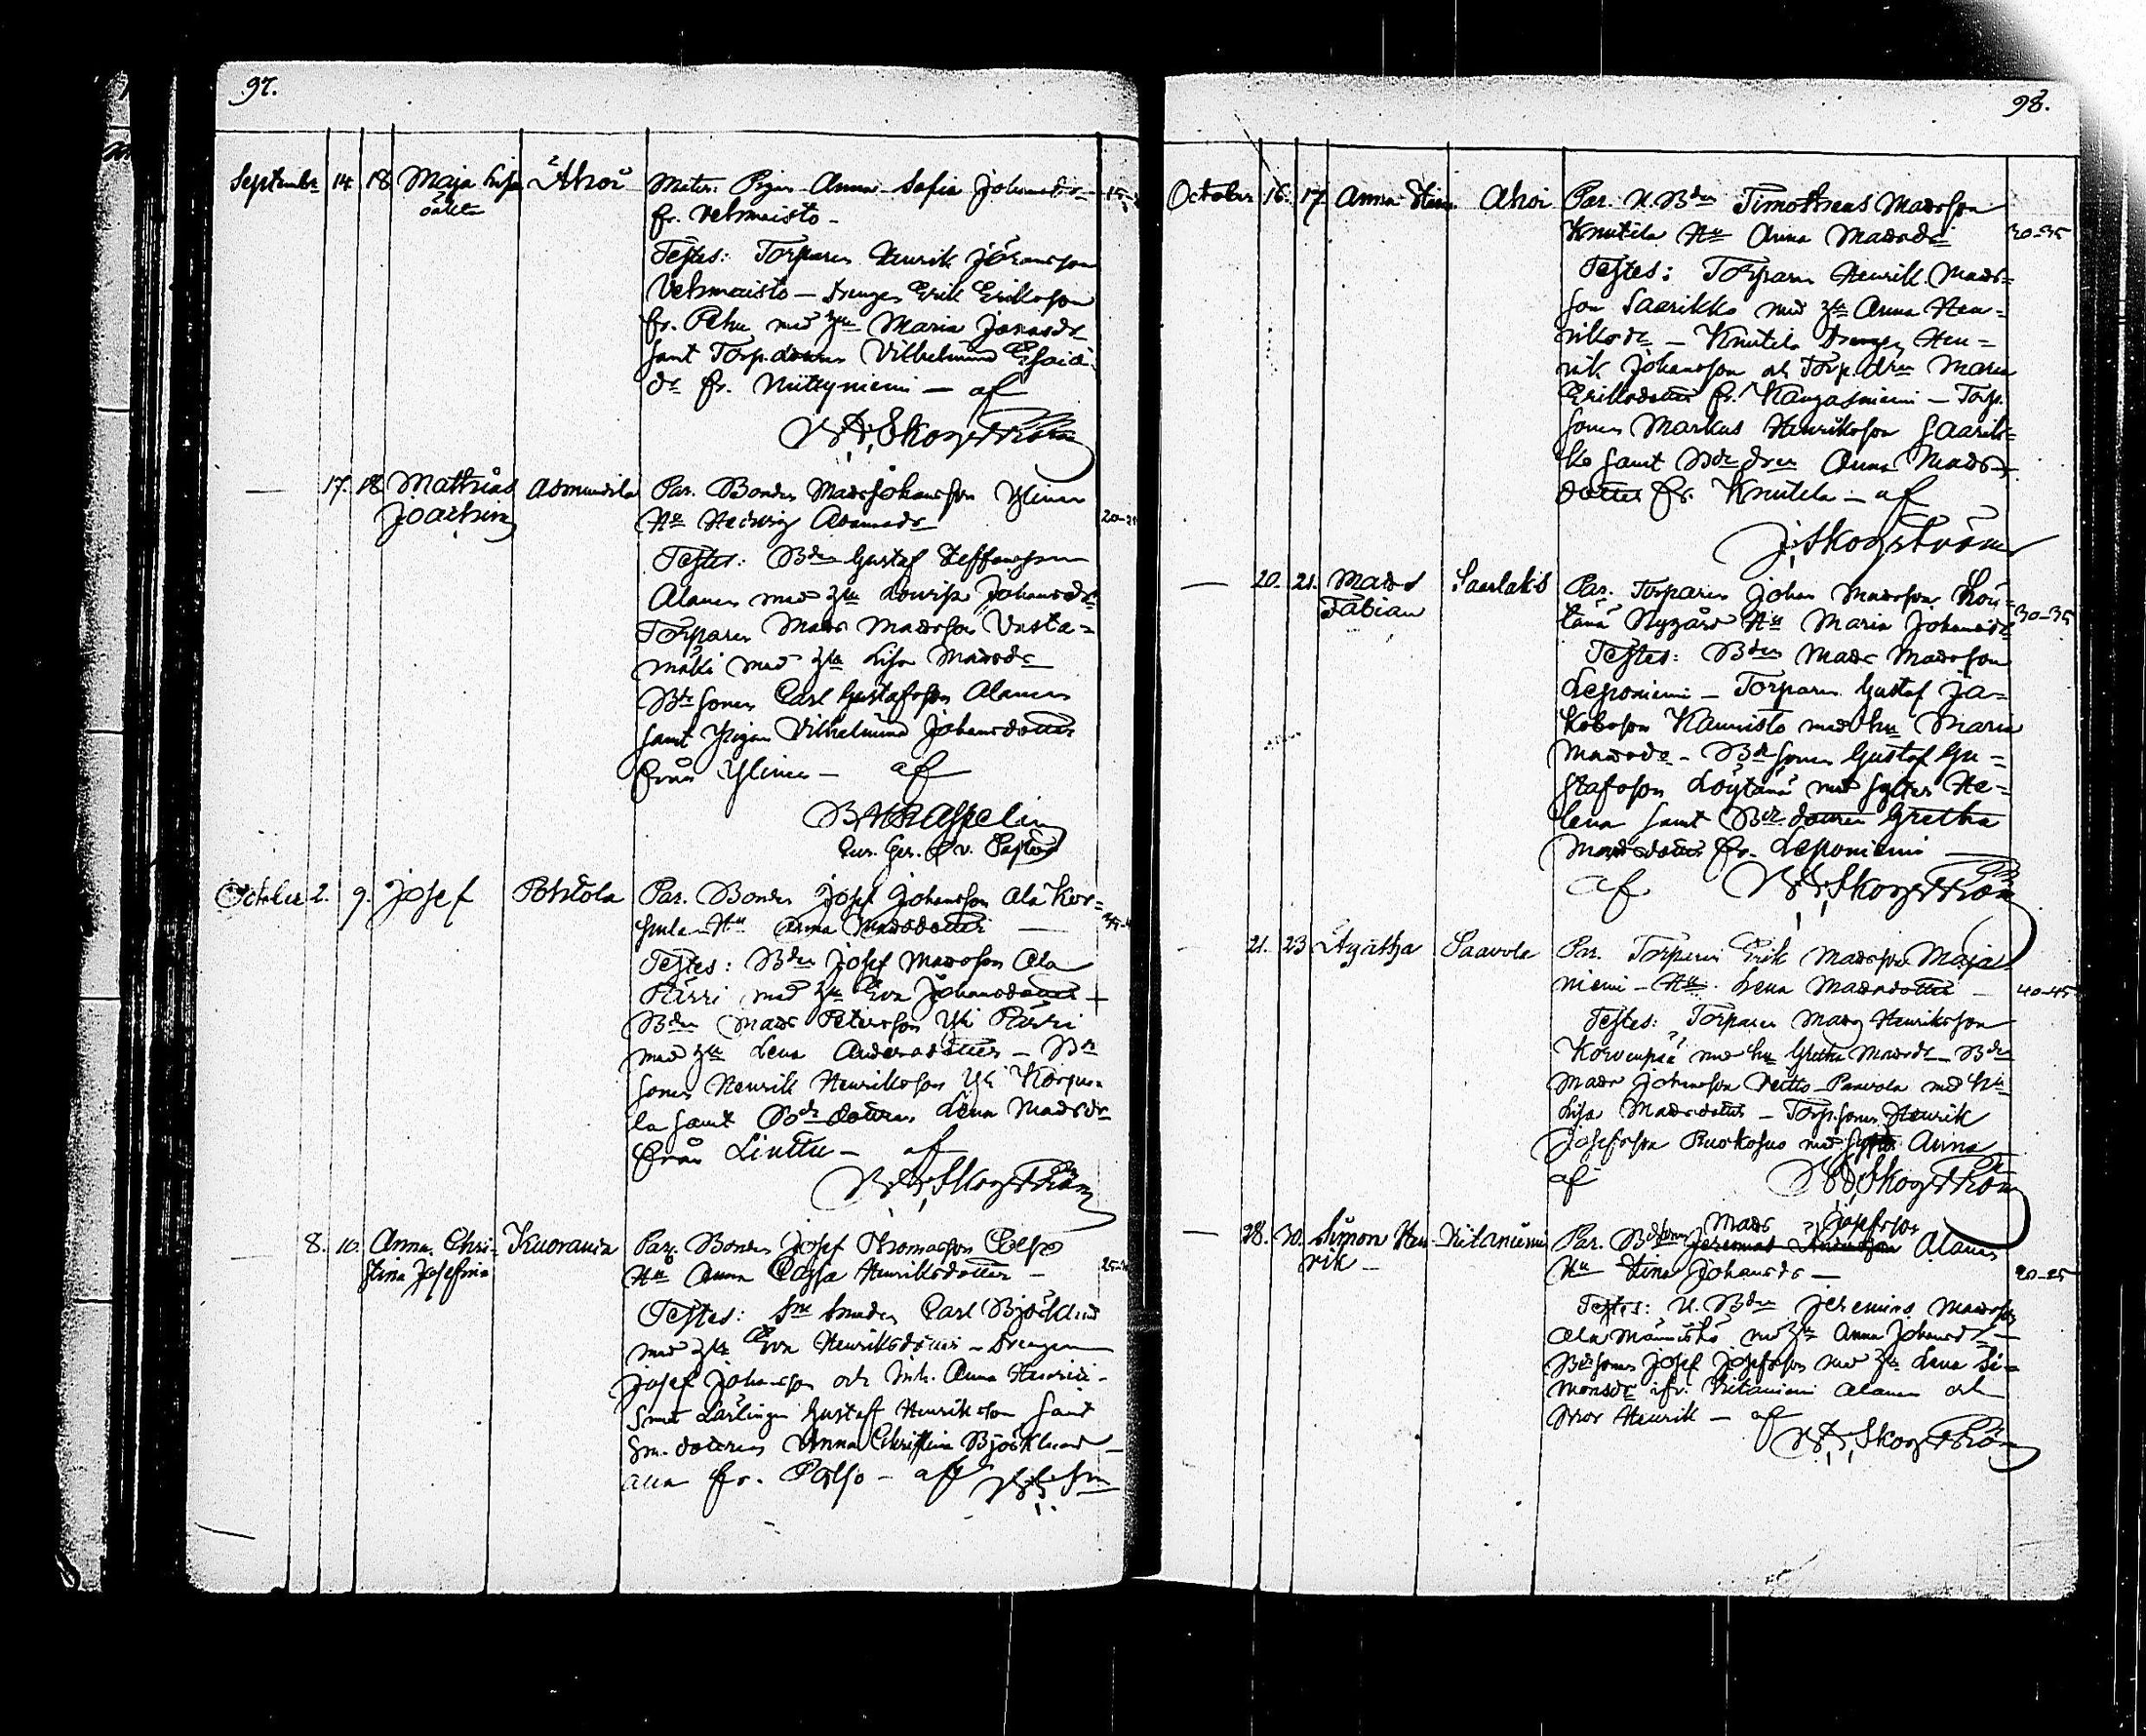 97.
September 14 18 Maja Lisa Ahoi Mater: Pigan Anna Sofia Johansdr 15-
oäkta fr. Vehmaisto -
Testes: Torparen Henrik Johansson
Vehmaisto - Drengen Erik Eriksson
fr. Pehu med hu Maria Jonasdr
samt Torp.dottren Vilhelmina Esaiæ
dr fr. Niittyniemi - af
Skogström
— 17. 18 Mathias Asmundila Par. Bonden Mads Johansson Yliner
Joachim Hu Hedwig Adamsdr 20-25
Testes: Bden Gustaf Steffansson
Alanen med hu Lovisa Johansdr
Torparen Mads Madsson Uusta=
mäki med hu Lisa Madsdr
Bdesonen Carl Gustafsson Alanen
samt Pigan Vilhelmina Johansdotter
från Yliner - af
Aspelin
Cur. Ger. Pastor
October 2. 9. Josef Pohtola Par. Bonden Josef Johansson Ala Kor=
pula Hu Anna Madsdotter —
Testes: Bden Josef Madsson Ala
Pärri med hu Eva Johansdotter -
Bden Mads Petersson Yli Pärri
med hu Lena Andersdotter - Bde
sonen Henrik Henriksson Yli Korpu=
la samt Bdedottren Lena Madsdr
från Linttu - af
Skogström
— 8. 10. Anna Chri= Kuoranda Par. Bonden Josef Thomasson
stina Josefina Hu Anna Cajsa Henriksdotter - 25-
Testes: Smeden Carl Björklund
med hu Eva Henriksdotter - Drengen
Josef Johansson och Anna Henrici
Smed Lärlingen Gustaf Henriksson samt
Sm. dottren Anna Christina Björklund -
alla fr. - af
98.
October 16. 17. Anna Stina Ahoi Par. N.Bden Timotheus Madsson
Knutila Hu Anna Madsdr 30-35
Testes: Torparen Henrik Mads=
son Saarikko med hu Anna Hen=
riksdr - Knutila Drengen Hen=
rik Johansson och Torp.drn Maria
Eriksdotter fr. Kangasniemi - Torp.
sonen Markus Henriksson Saarik=
ko samt Bdedren Anna Mads
dotter fr. Knutila - af
Skogström
— 20. 21. Mads Saarlaks Par. Torparen Johan Madsson Löy=
Fabian tänä Nygård Hu Maria Johansdr 30-35
Testes: Bden Mads Madsson
Leponiemi - Torparen Gustaf Ja=
kobsson Kaunisto med hu Maria
Madsdr - Bdesonen Gustaf Gu=
stafsson Löytänä med syster He=
lena samt Bdedottren Gretha
Madsdotter fr. Leponiemi —
af Skogström
— 21. 23 Agatha Saavola Par. Torparen Erik Madsson Maja=
niemi - Hu Lena Madsdotter - 40-45
Testes: Torparen Mads Henriksson
Korvenpää med hu Gretha Madsdr - Bden
Mads Johansson Paavola med hu
Lisa Madsdotter - Torp.sonen Henrik
Josefsson Ruokosuo med syster Anna
af Skogström
— 28. 30. Simon Hen- Riitaniemi Par. Bdesonen Mads Josefsson Alanen
rik - Hu Stina Johansdr - 20-25
Testes: N. Bden Jeremias Madsson
Ala Männistö med hu Anna Johansdr -
Bdesonen Josef Josefsson med hu Lena Si=
monsdr ifr. Riitaniemi Alanen och
Bror Henrik - af
Skogström